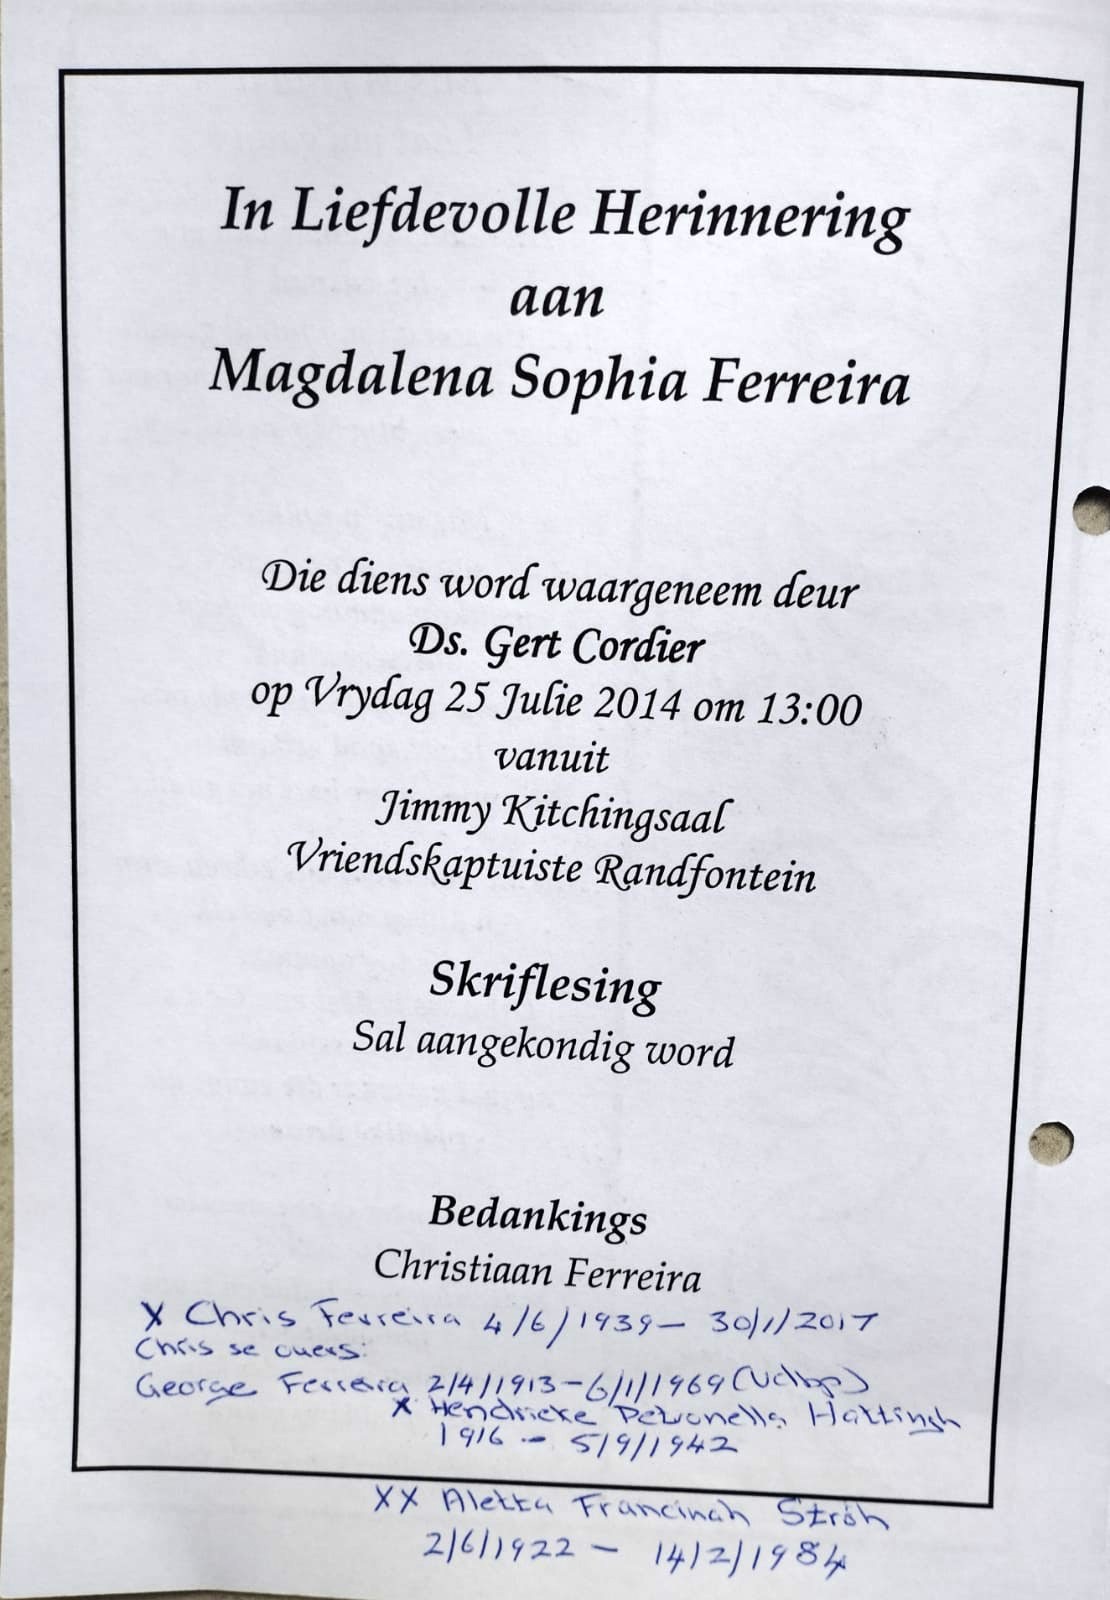 In Liefdevolle Herinnering
aan
Magdalena Sophia Ferreira
Die diens word waargeneem deur
Ds. Gert Cordier
op Vrydag 25 Julie 2014 om 13:00
vanuit
Jimmy Kitchingsaal
Vriendskaptuiste Randfontein
Skriflesing
Sal aangekondig word
Bedankings
Christiaan Ferreira
X Chris Ferreira 4/6/1939 – 30/1/2017
Chris se ouers:
George Ferreira 2/4/1913 – 6/1/1969 (Vdbp)
X Hendrieke Petronella Hattingh
1916 – 5/9/1942
XX Aletta Francinah Ströh
2/6/1922 – 14/2/1984